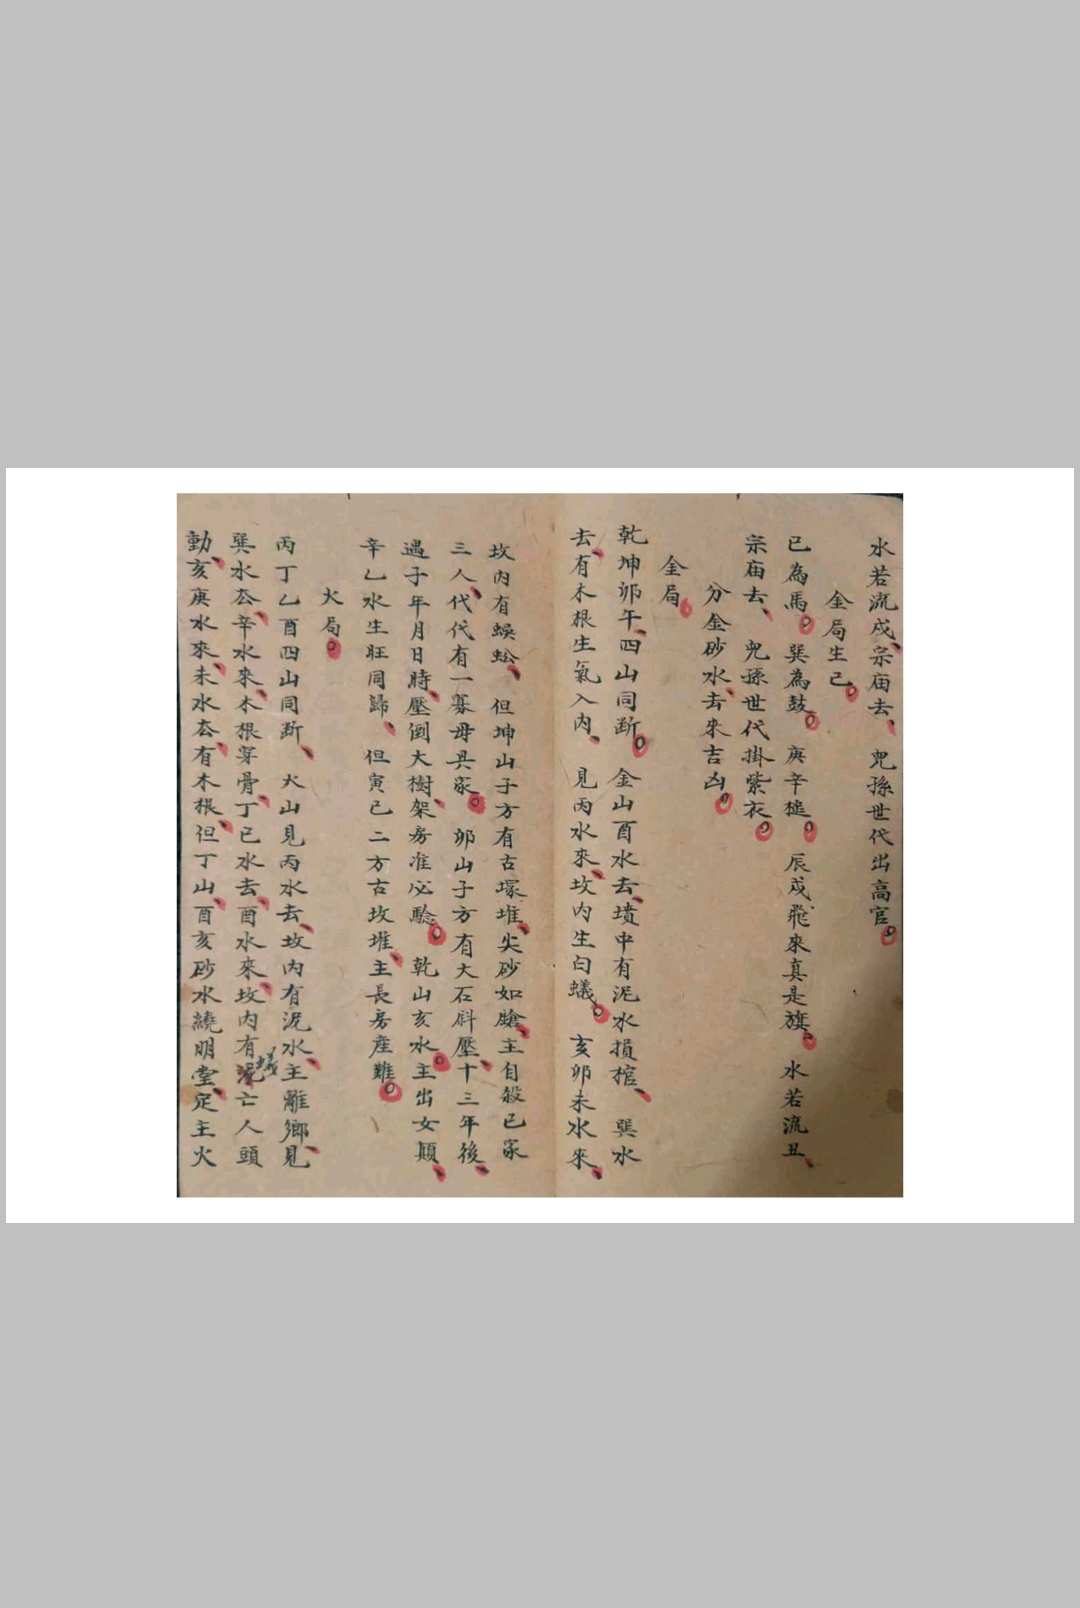 水若流戍宗庙去、兒孫世代出高官。
金局生己
已為馬。巽為鼓。庚辛槌。辰戍飛來真是旗。水若流丑、
宗庙去、兒孫世代掛紫衣。
分金砂水、去來吉凶。
金局
乾坤卯午、四山同断。金山酉水去、墳中有泥水損棺、巽水
去、有木根生氣入内、見丙水來、坟内生白蟻。亥卯未水來、
坟内有蜈蚣、但坤山子方有古塚堆、尖砂如鎗、主自殺已家
三人、代代有一寡母具家。卯山子方有大石斜壓、十三年後、
遇子年月日時、壓倒大樹、架房准必驗。乾山亥水主出女顛、
辛乙水生旺同歸、但寅巳二方古坟堆、主長房産難。
火局
丙丁乙酉四山同断、火山見丙水去、坟内有泥水、主離鄉、見
巽水厺、辛水來、木根穿骨、丁巳水去、酉水來、坟内有蟻亡人頭
動、亥庚水來、未水厺、有木根、但丁山、酉亥砂水繞明堂、定主火